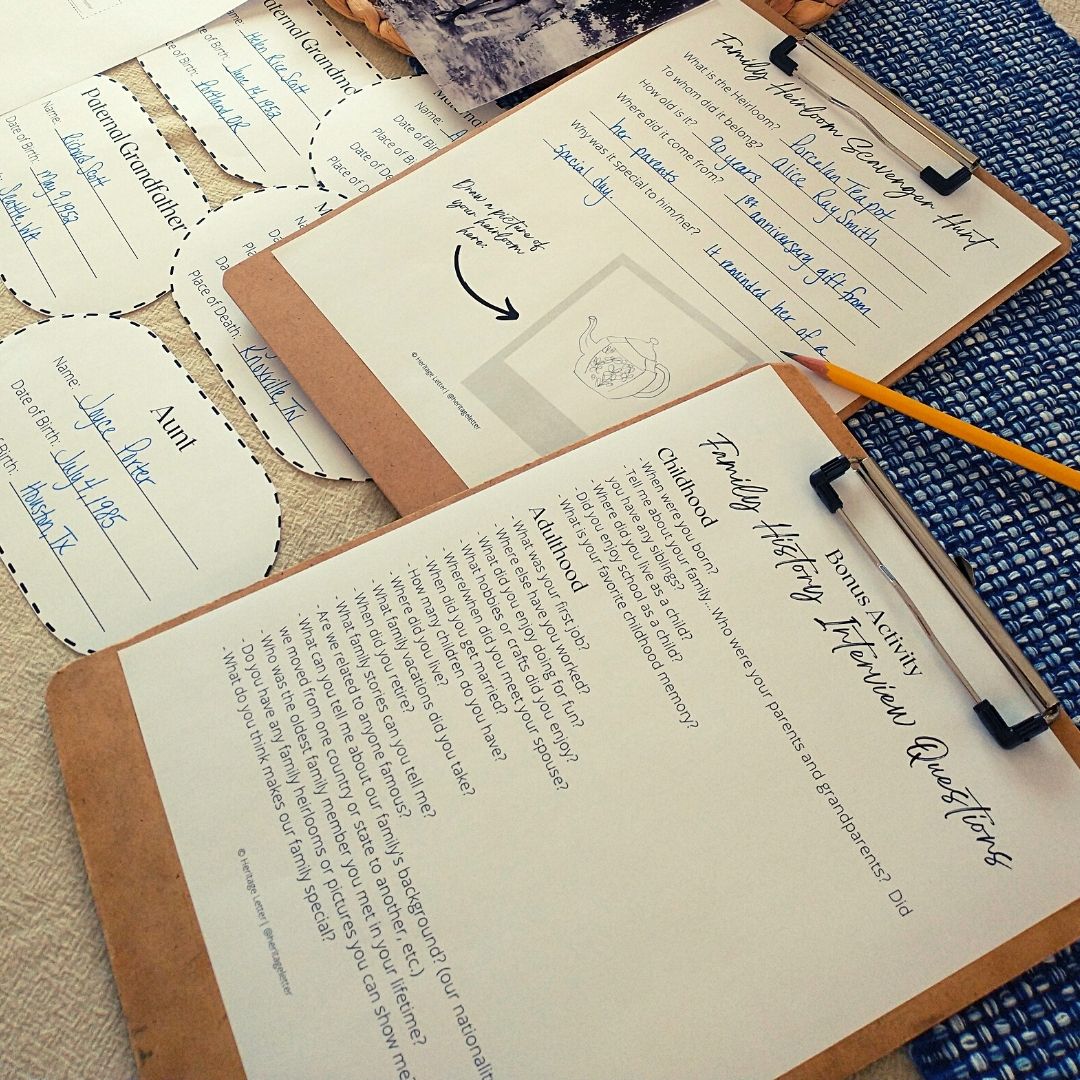 Paternal Grandmo
Name: Helen Rice Scott
Date of Birth: June 14, 1952
Place of Birth: Portland, OR
Paternal Grandfather
Name: Richard Scott
Date of Birth: May 9, 1952
Seattle, WA
Name:
Date of Birth:
Place of
Date of Death
Place of
Place of Death:
Knoxville, TN
Aunt
Name: Jayce Porter
Date of Birth: July 4, 1985
Birth: Houston, TX
Family Heirloom Scavenger Hunt
What is the Heirloom? Porcelien Teapot
To whom did it belong? Alice Kay Smith
How old is it? 90 years
Where did it come from? 1st anniversary gift from
her parents
Why was it special to him/her? It reminded her of a
special day.
Draw a picture of
your heirloom
here:
© Heritage Letter | @heritageletter
Bonus Activity
Family History Interview Questions
Childhood
- When were you born?
- Tell me about your family...Who were your parents and grandparents? Did
you have any siblings?
- Where did you live as a child?
- Did you enjoy school as a child?
- What is your favorite childhood memory?
Adulthood
- What was your first job?
- Where else have you worked?
- What did you enjoy doing for fun?
- What hobbies or crafts did you enjoy?
- Where/when did you meet your spouse?
- When did you get married?
- How many children do you have?
- Where did you live?
- What family vacations did you take?
- When did you retire?
- What family stories can you tell me?
- Are we related to anyone famous?
- What can you tell me about our family's background? (our nationalit
we moved from one country or state to another, etc.)
- Who was the oldest family member you met in your lifetime?
- Do you have any family heirlooms or pictures you can show me?
- What do you think makes our family special?
© Heritage Letter | @heritageletter